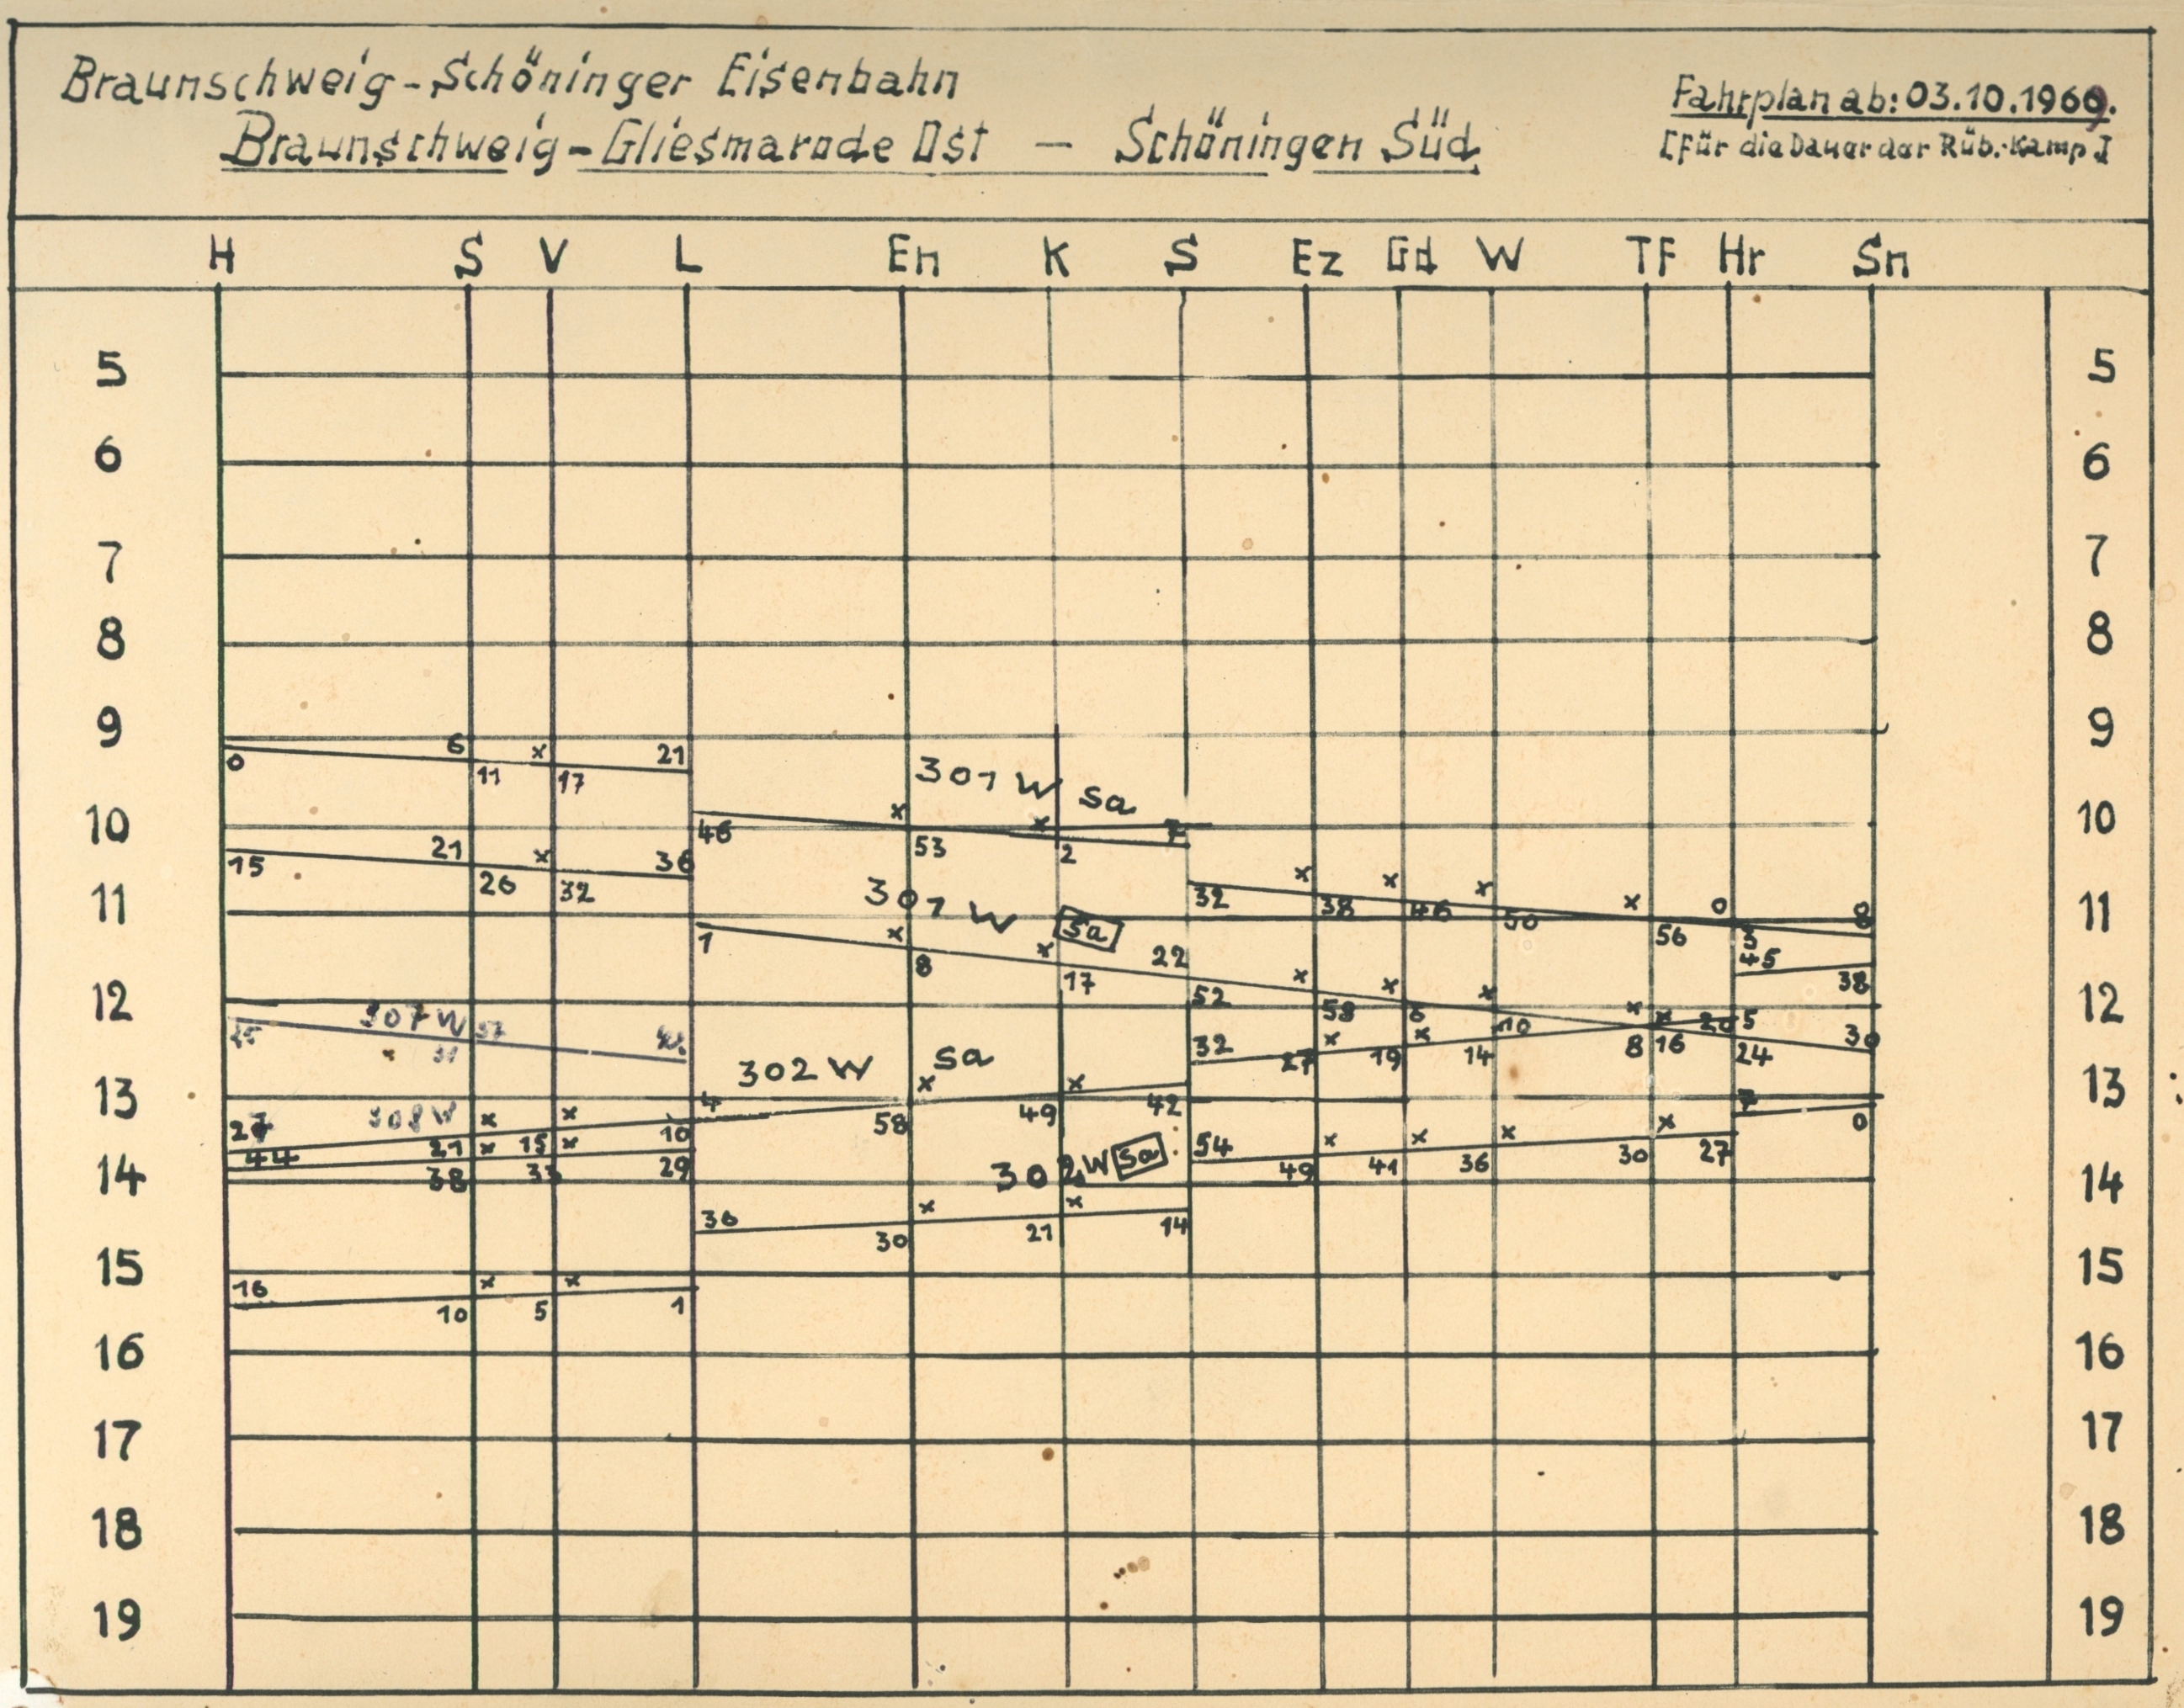 Braunschweig-Schöninger Eisenbahn
Braunschweig-Gliesmarode Ost – Schöningen Süd
Fahrplan ab: 03.10.1969.
[Für die Dauer der Rüb.-Kamp]
H S V L En K S Ez Gd W TF Hr Sn
5 5
6 6
7 7
8 8
9 9
6 x 21
0 11 17
301 W Sa
10 10
x x 7
46 53 2
21 x 36
15 26 32
x x x x 0 8
32 38 46 50 56 3
11 11
301 W Sa
x x 22
1 8 17
45 38
x x x x
52 58 6 10 16 24 30
12 12
307 W
x x x 20 5
32 27 19 14 8
302 W Sa
13 13
4 x x
58 49 42
7 0
308 W
27 x x
21 15 10
44 x x
38 33 29
302 W Sa
54 x x x x
49 41 36 30 27
14 14
36 x x
30 21 14
15 15
16 x x
10 5 1
16 16
17 17
18 18
19 19